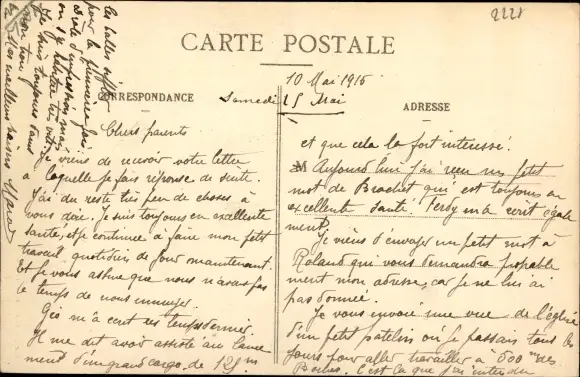 2228
CARTE POSTALE
CORRESPONDANCE
ADRESSE
10 Mai 1915
Samedi 15 Mai
Chers parents
Je viens de recevoir votre lettre
à laquelle je fais réponse de suite.
J'ai du reste très peu de choses à
vous dire. Je suis toujours en excellente
santé, et je continue à faire mon petit
travail quotidien de jour maintenant.
Et je vous assure que nous n'avons pas
le temps de nous ennuyer.
Géo m'a écrit ces temps derniers.
Il me dit avoir assisté au lance
ment d'un grand cargo, de 125 m
et que cela l'a fort intéressé.
Aujourd'hui j'ai reçu un petit
mot de Brochet qui est toujours en
excellente santé. Ferdy m'a écrit égale
ment.
Je viens d'envoyer un petit mot à
Roland qui vous demandra probable
ment mon adresse, car je ne lui ai
pas donnée.
Je vous envoie une vue de l'église
d'un petit patelin où je passais tous les
jours pour aller travailler à 500 m des
Boches. C'est là que j'ai entendu
les balles siffler
pour la première fois
drôle d'impression mais
on s'y habitue très vite
Je suis toujours dans
mon trou
Mes meilleurs baisers